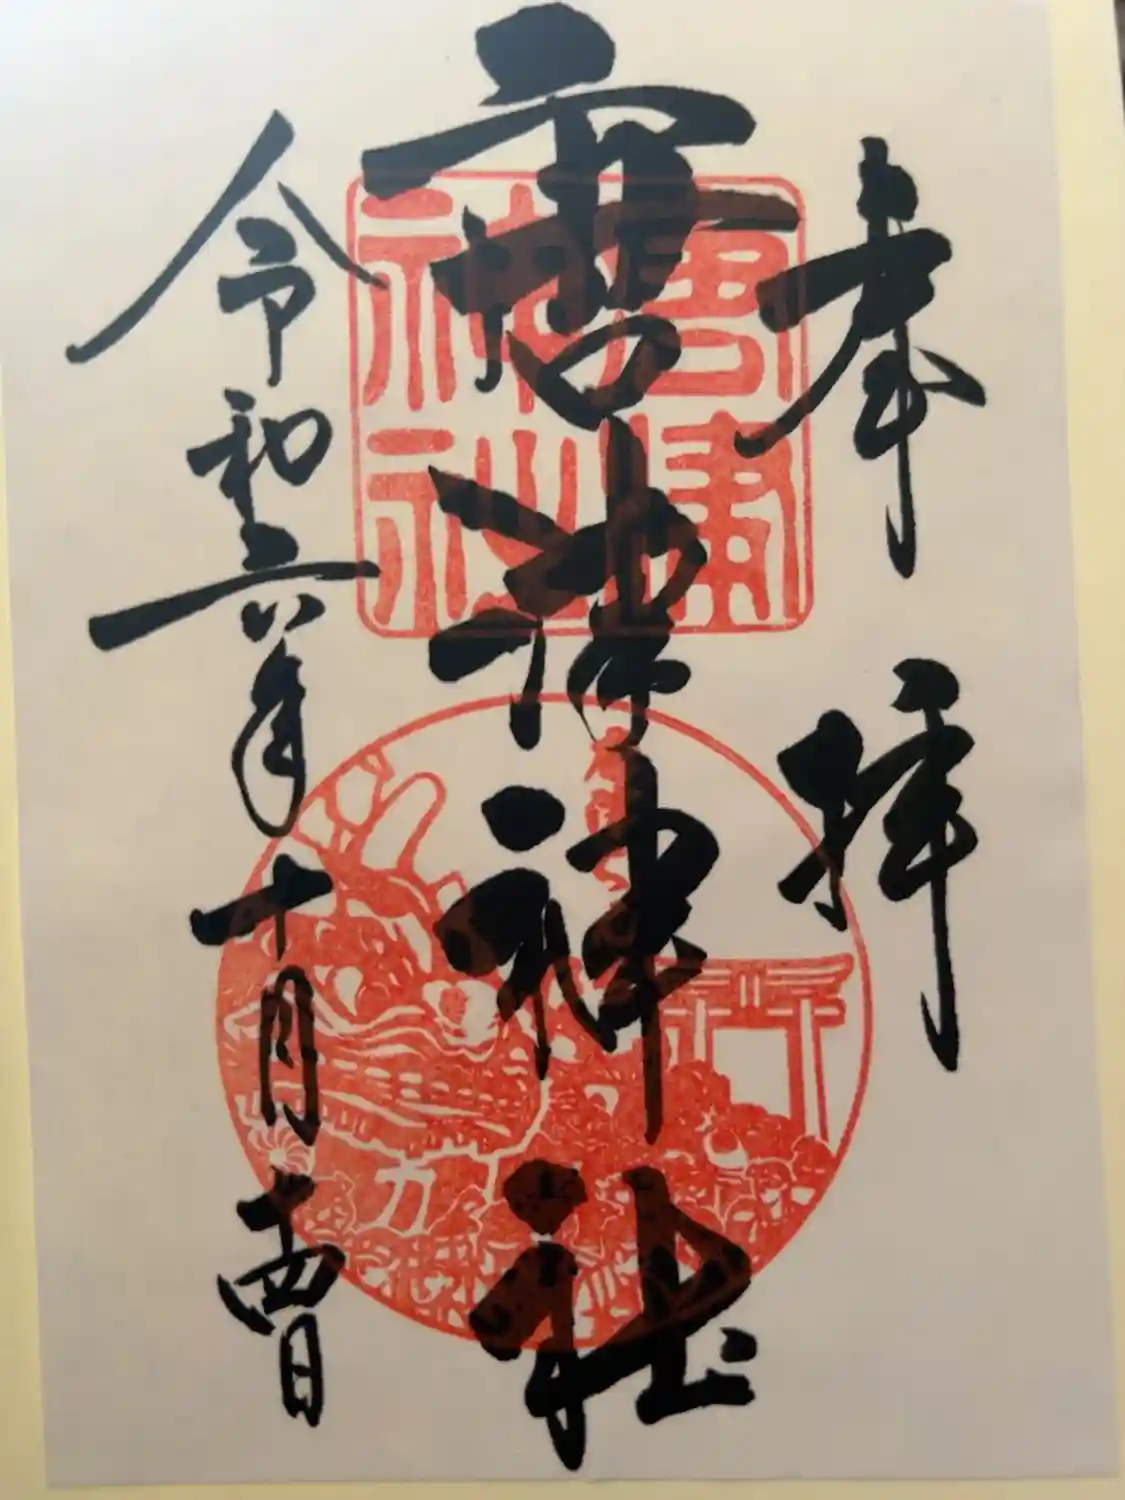 奉拝
唐津神社
唐津
神社
令和六年十月十四日